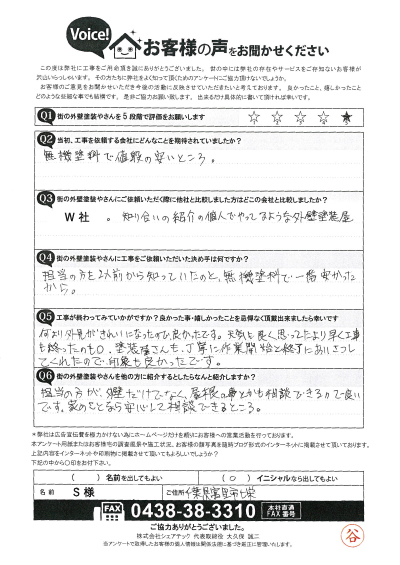 Voice!
お客様の声をお聞かせください
この度は弊社に工事をご用命頂き誠にありがとうございました。世の中には弊社の存在やサービスをご存知ないお客様が
沢山いらっしゃいます。その方たちに弊社をよく知って頂くためのアンケートにご協力頂けないでしょうか。
お客様のご意見をお聞かせいただき今後の活動に反映させていただきたいと考えております。良かったこと、嬉しかったこと
どのような些細な事でも結構です。是非ご協力お願い致します。出来るだけ具体的に書いて頂ければ幸いです。
Q1 街の外壁塗装やさんを5段階で評価をお願いします ☆ ☆ ☆ ☆ ★
Q2 当初、工事を依頼する会社にどんなことを期待されていましたか?
無機塗料で値段の安いところ。
Q3 街の外壁塗装やさんにご依頼いただく際に他社と比較しました方はどこの会社と比較しましたか?
W社 。知り合いの紹介の個人でやってるような外壁塗装屋
Q4 街の外壁塗装やさんに工事をご依頼いただいた決め手は何ですか?
担当の方を以前から知っていたのと、無機塗料で一番安かった
から。
Q5 工事が終わってみていかがですか?良かった事・嬉しかったことを忌憚なく頂戴出来ましたら幸いです
なにより外見がきれいになったので良かったです。天気も良く思ってたより早く工事
も終ったのも○。塗装屋さんも、丁寧に作業開始と終了にあいさつし
てくれたので、印象も良かったです。
Q6 街の外壁塗装やさんを他の方に紹介するとしたらなんと紹介しますか?
担当の方が、壁だけでなく、屋根の事とかも相談できるので良い
です。家のことなら安心して相談できるところ。
※弊社は広告宣伝費を極力かけない為にホームページだけを頼りにお客様への営業活動を行っております。
本アンケート用紙またはお客様宅での調査風景や施工状況、お客様の顔写真を随時ブログ形式のインターネットに掲載させて頂いております。
上記内容をインターネットや印刷物に掲載させて頂いてもよろしいでしょうか?
下記の中から○印をお付け下さい。
( ) 名前を出してもよい ( ○ ) イニシャルなら出してもよい
名前 S様 ご住所 千葉県富里市七栄
FAX 0438-38-3310 本社直通 FAX番号
ご協力ありがとうございました。
株式会社シェアテック 代表取締役 大久保 誠二
※アンケートで取得したお客様の個人情報は関係法規に基づき厳正に管理いたします。
谷